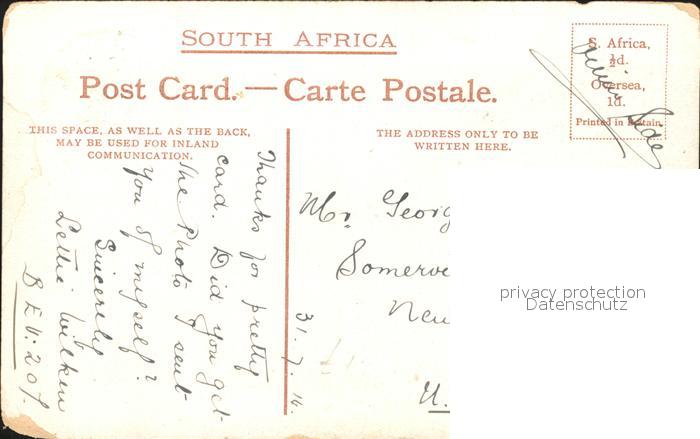 SOUTH AFRICA
Post Card. — Carte Postale.
S. Africa,
½d.
Oversea,
1d.
Printed in Britain.
THIS SPACE, AS WELL AS THE BACK,
MAY BE USED FOR INLAND
COMMUNICATION.
THE ADDRESS ONLY TO BE
WRITTEN HERE.
Thanks for pretty
card. Did you get
the Photo I sent
you of myself?
Sincerely
Lettie Wilken
31.7.14.
Mr. Georg
Somerve
New
U.
privacy protection
Datenschutz